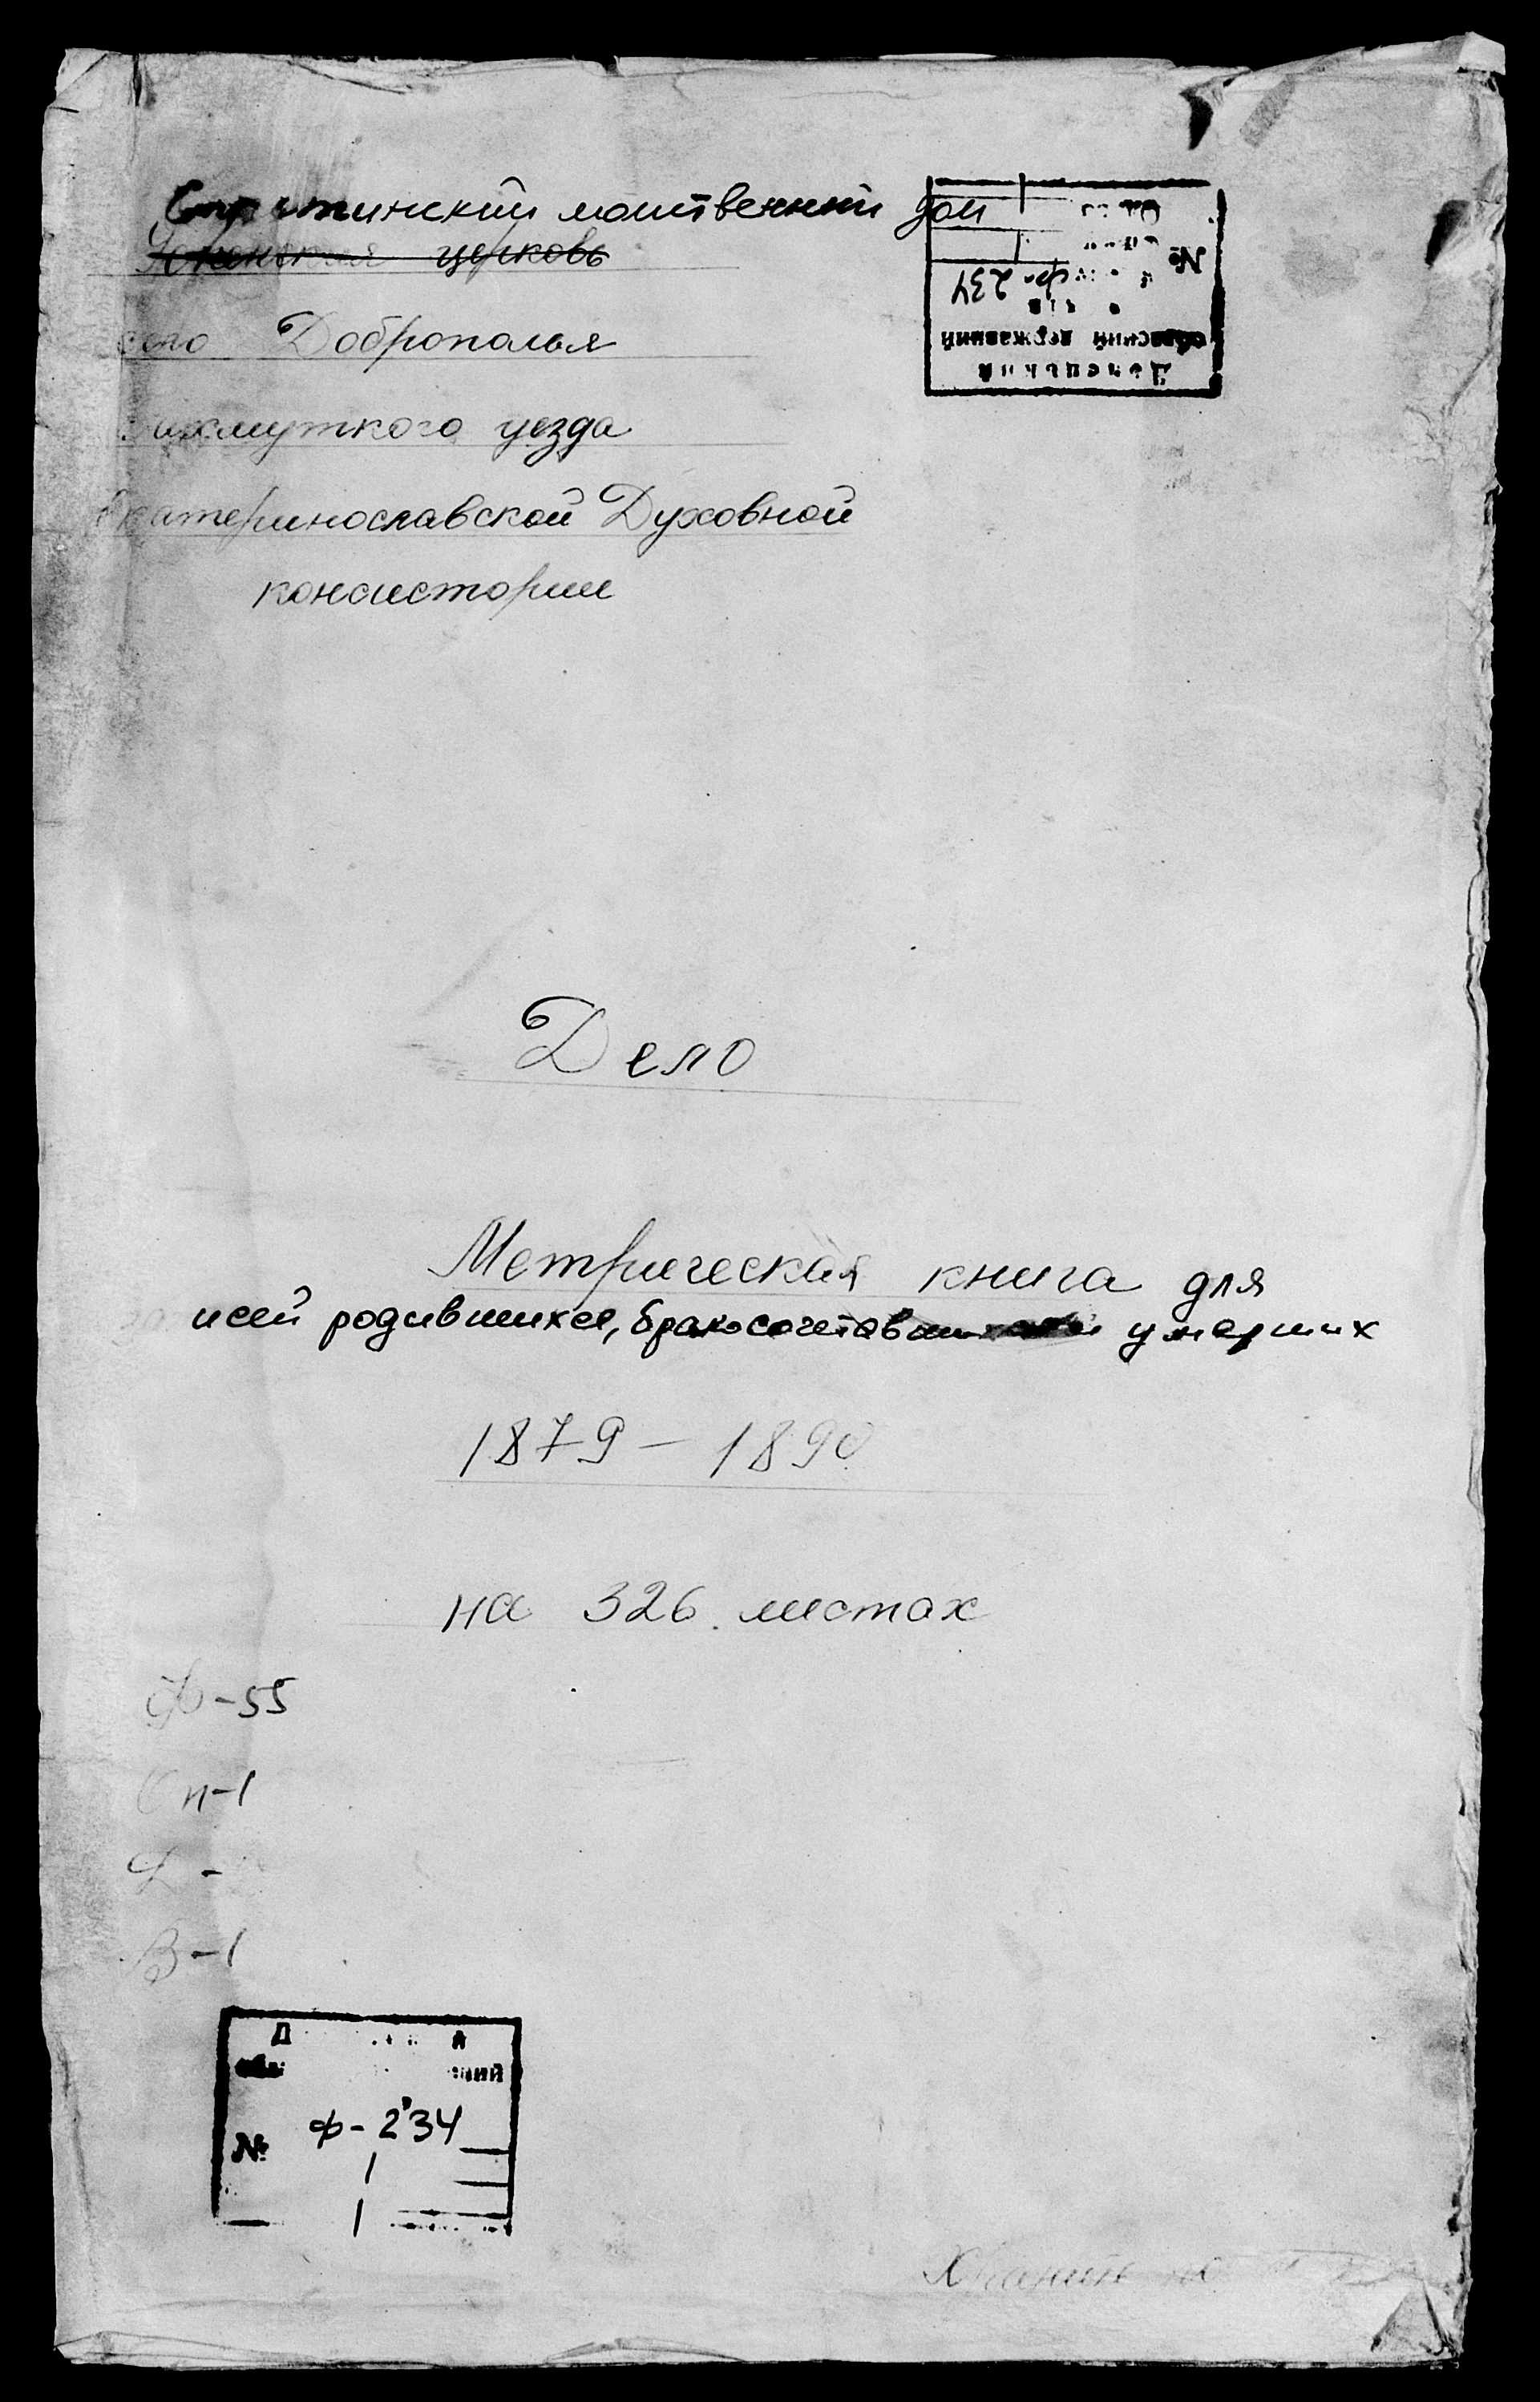 молитвенный дом
церковь
село Доброполья
Бахмуткого уезда
Екатеринославской Духовной
консистории
Донецький
обласний державний
№
Ф-234
Дело
Метрическая книга для
исей родившихся, бракосочетав умерших
1879 – 1890
на 326 листах
Ф-55
Оп-1
В-1
№ Ф-234
1
1